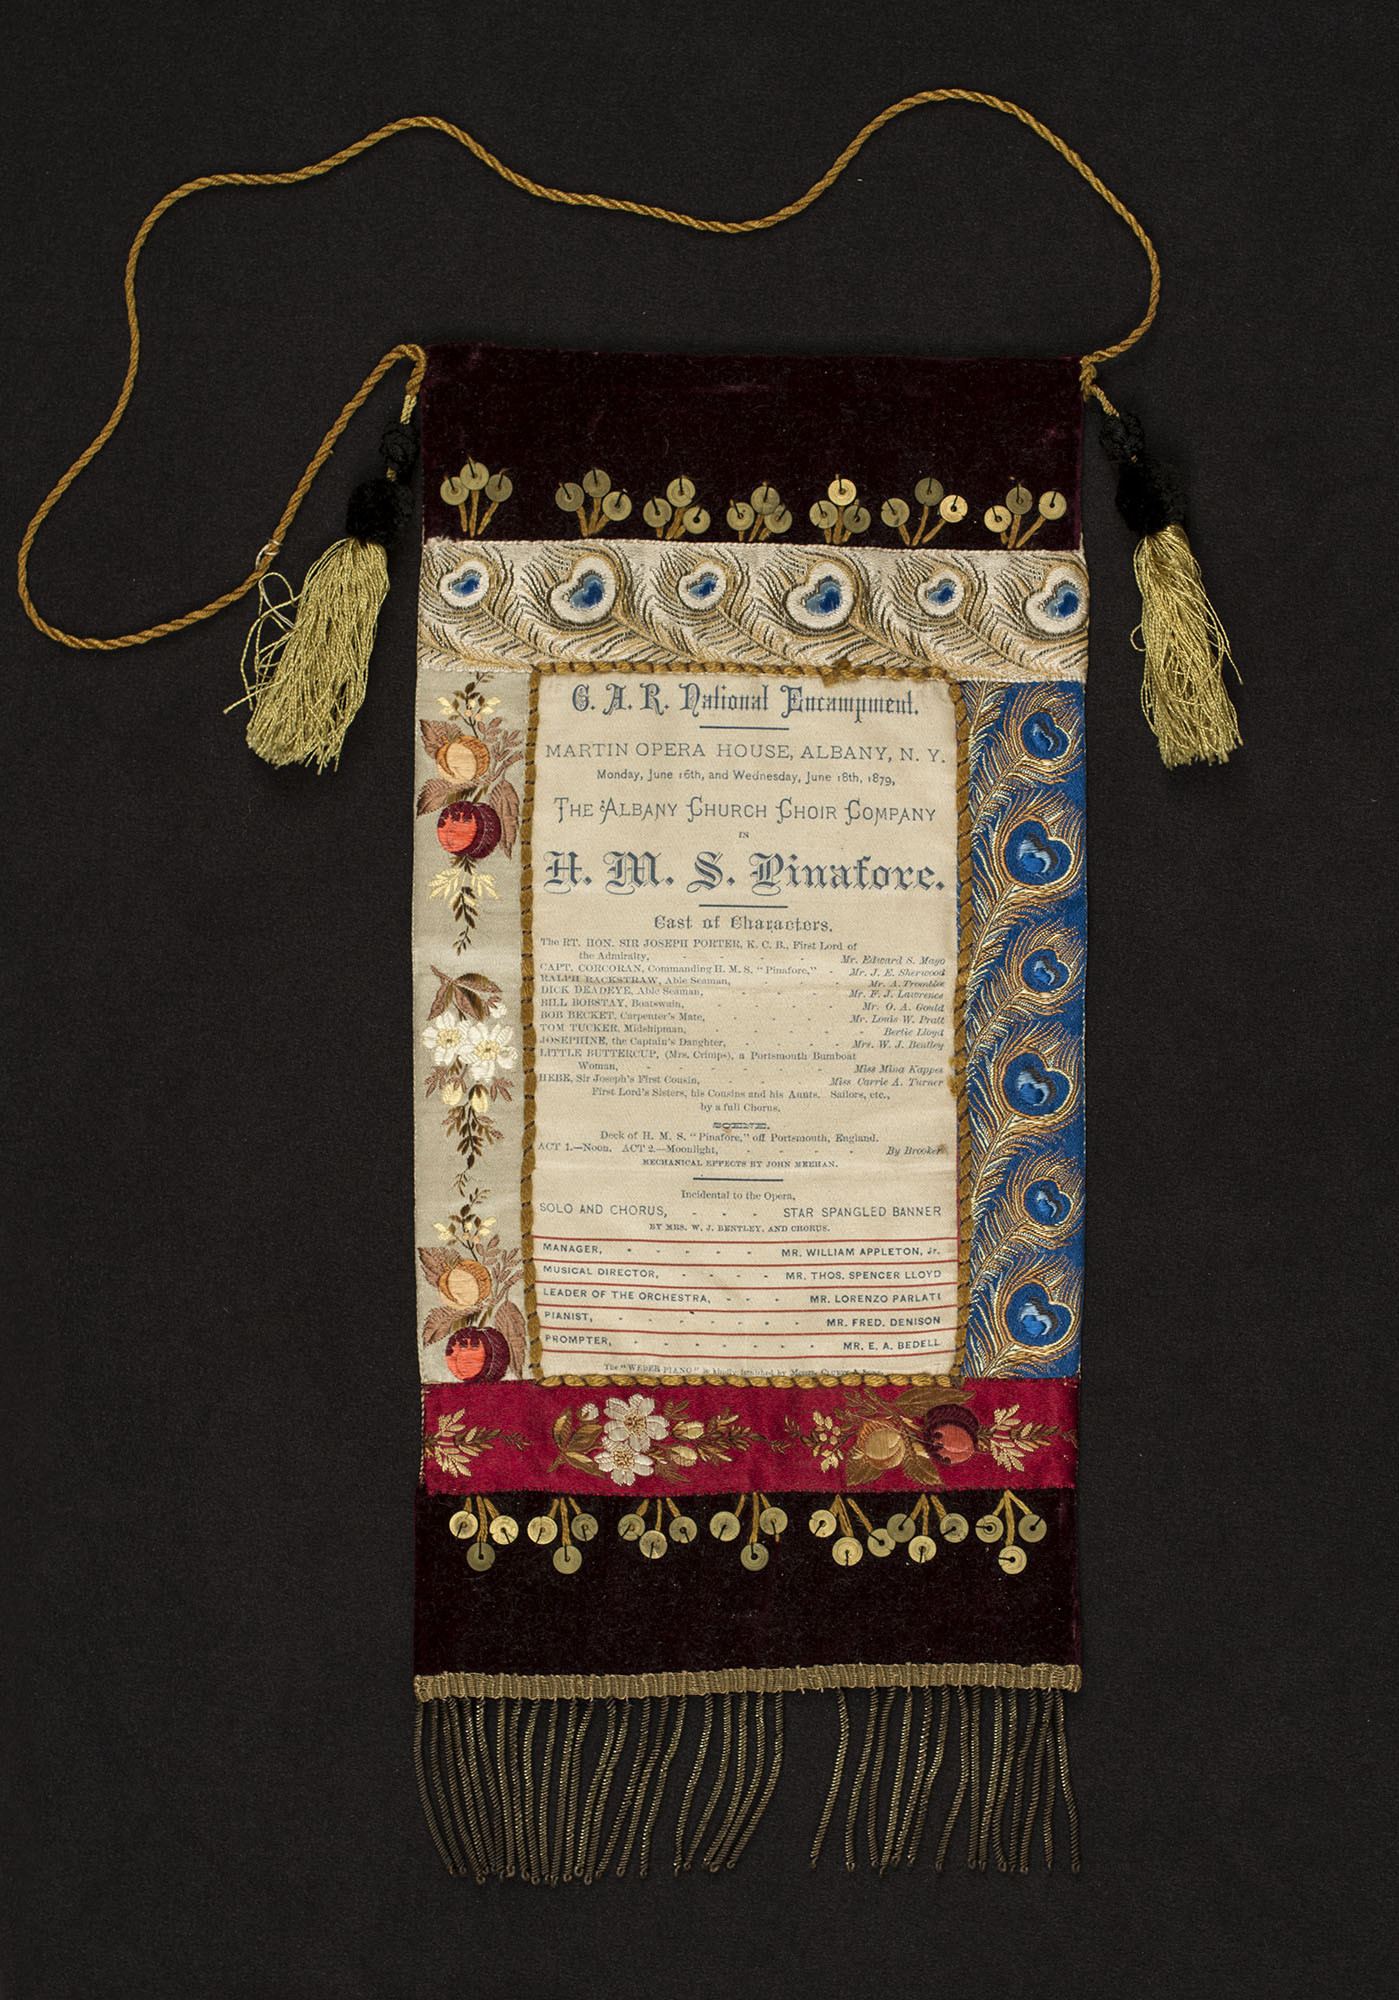 G. A. R. National Encampment.
MARTIN OPERA HOUSE, ALBANY, N. Y.
Monday, June 16th, and Wednesday, June 18th, 1879,
THE ALBANY CHURCH CHOIR COMPANY
IN
H. M. S. Pinafore.
Cast of Characters.
The RT. HON. SIR JOSEPH PORTER, K. C. B., First Lord of
the Admiralty, - - - - - - Mr. Edward S. Mayo
CAPT. CORCORAN, Commanding H. M. S. "Pinafore," - Mr. J. E. Sherwood
RALPH RACKSTRAW, Able Seaman, - - - Mr. A. Tremblee
DICK DEADEYE, Able Seaman, - - - - Mr. F. J. Lawrence
BILL BOBSTAY, Boatswain, - - - - - Mr. O. A. Gould
BOB BECKET, Carpenter's Mate, - - - - Mr. Louis W. Pratt
TOM TUCKER, Midshipman, - - - - - - Bertie Lloyd
JOSEPHINE, the Captain's Daughter, - - - - Mrs. W. J. Bentley
LITTLE BUTTERCUP, (Mrs. Cripps), a Portsmouth Bumboat
Woman, - - - - - - - Miss Mina Kappes
HEBE, Sir Joseph's First Cousin, - - - - Miss Carrie A. Turner
First Lord's Sisters, his Cousins and his Aunts. Sailors, etc.,
by a full Chorus.
SCENE.
Deck of H. M. S. "Pinafore," off Portsmouth, England.
ACT 1.—Noon. ACT 2.—Moonlight, - - - - - By Brooker
MECHANICAL EFFECTS BY JOHN MEEHAN.
Incidental to the Opera,
SOLO AND CHORUS, - - - STAR SPANGLED BANNER
BY MRS. W. J. BENTLEY, AND CHORUS.
MANAGER, - - - - - MR. WILLIAM APPLETON, Jr.
MUSICAL DIRECTOR, - - - - MR. THOS. SPENCER LLOYD
LEADER OF THE ORCHESTRA, - - - MR. LORENZO PARLATI
PIANIST, - - - - - - - MR. FRED. DENISON
PROMPTER, - - - - - - MR. E. A. BEDELL
The "WEBER PIANO" is kindly furnished by Messrs.